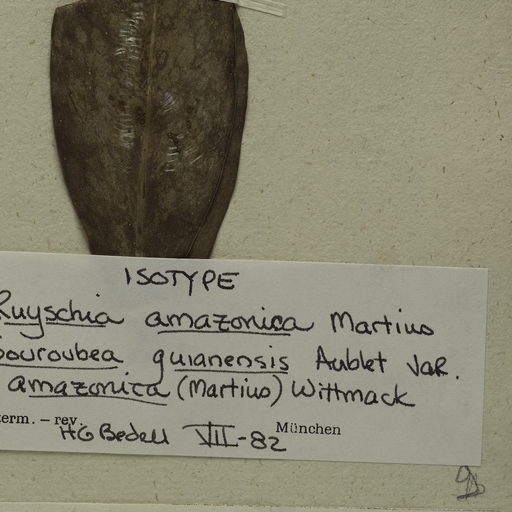 ISOTYPE
Ruyschia amazonica Martius
Souroubea guianensis Aublet var.
amazonica (Martius) Wittmack
term. – rev. HG Bedell VII-82 München